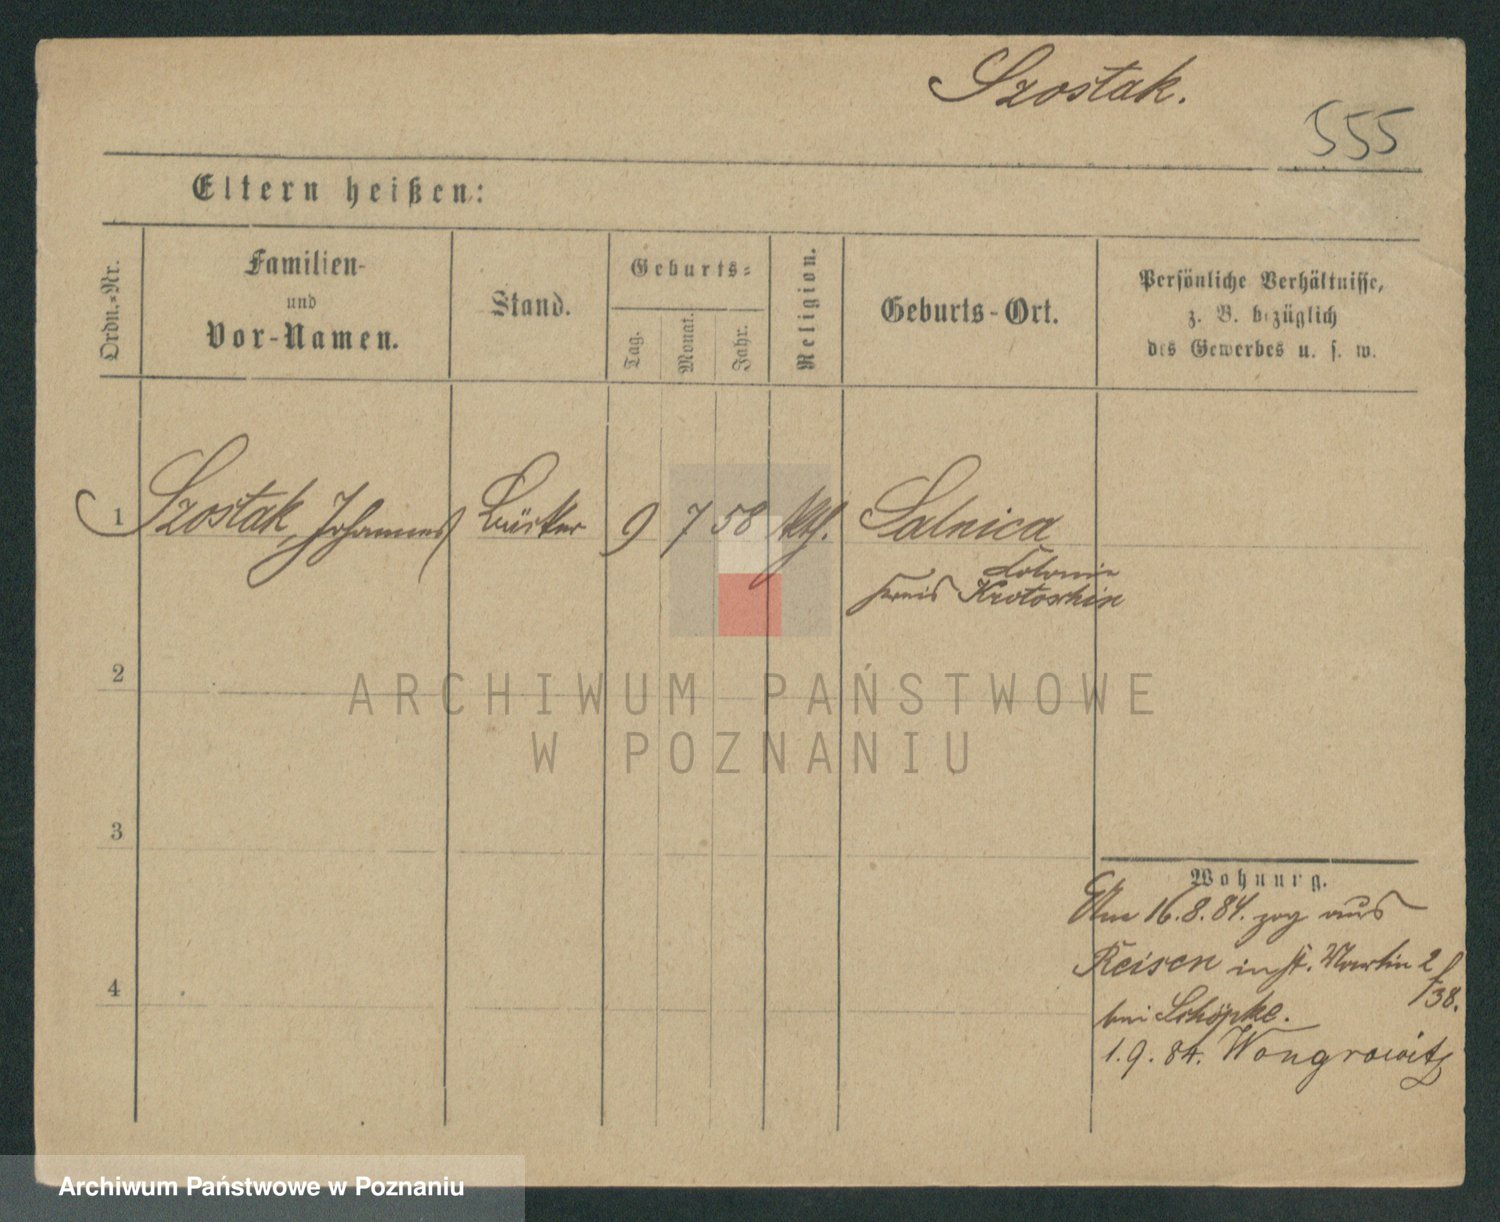 Szostak.
555
Eltern heißen:
Ordn.-Nr.
Familien-
und
Vor-Namen.
Stand.
Geburts-
Tag.
Monat.
Jahr.
Religion.
Geburts-Ort.
Persönliche Verhältnisse,
z. B. bezüglich
des Gewerbes u. s. w.
1 Szostak, Johannes 9 7 58 kth. Salnica
Colonie
Kreis Krotoschin
2
ARCHIWUM PAŃSTWOWE
W POZNANIU
3
Wohnung.
Am 16.8.84. zog aus
Reisen in St. Martin 2
/38.
bei Schöpke.
4
1.9.84. Wongrowitz
Archiwum Państwowe w Poznaniu